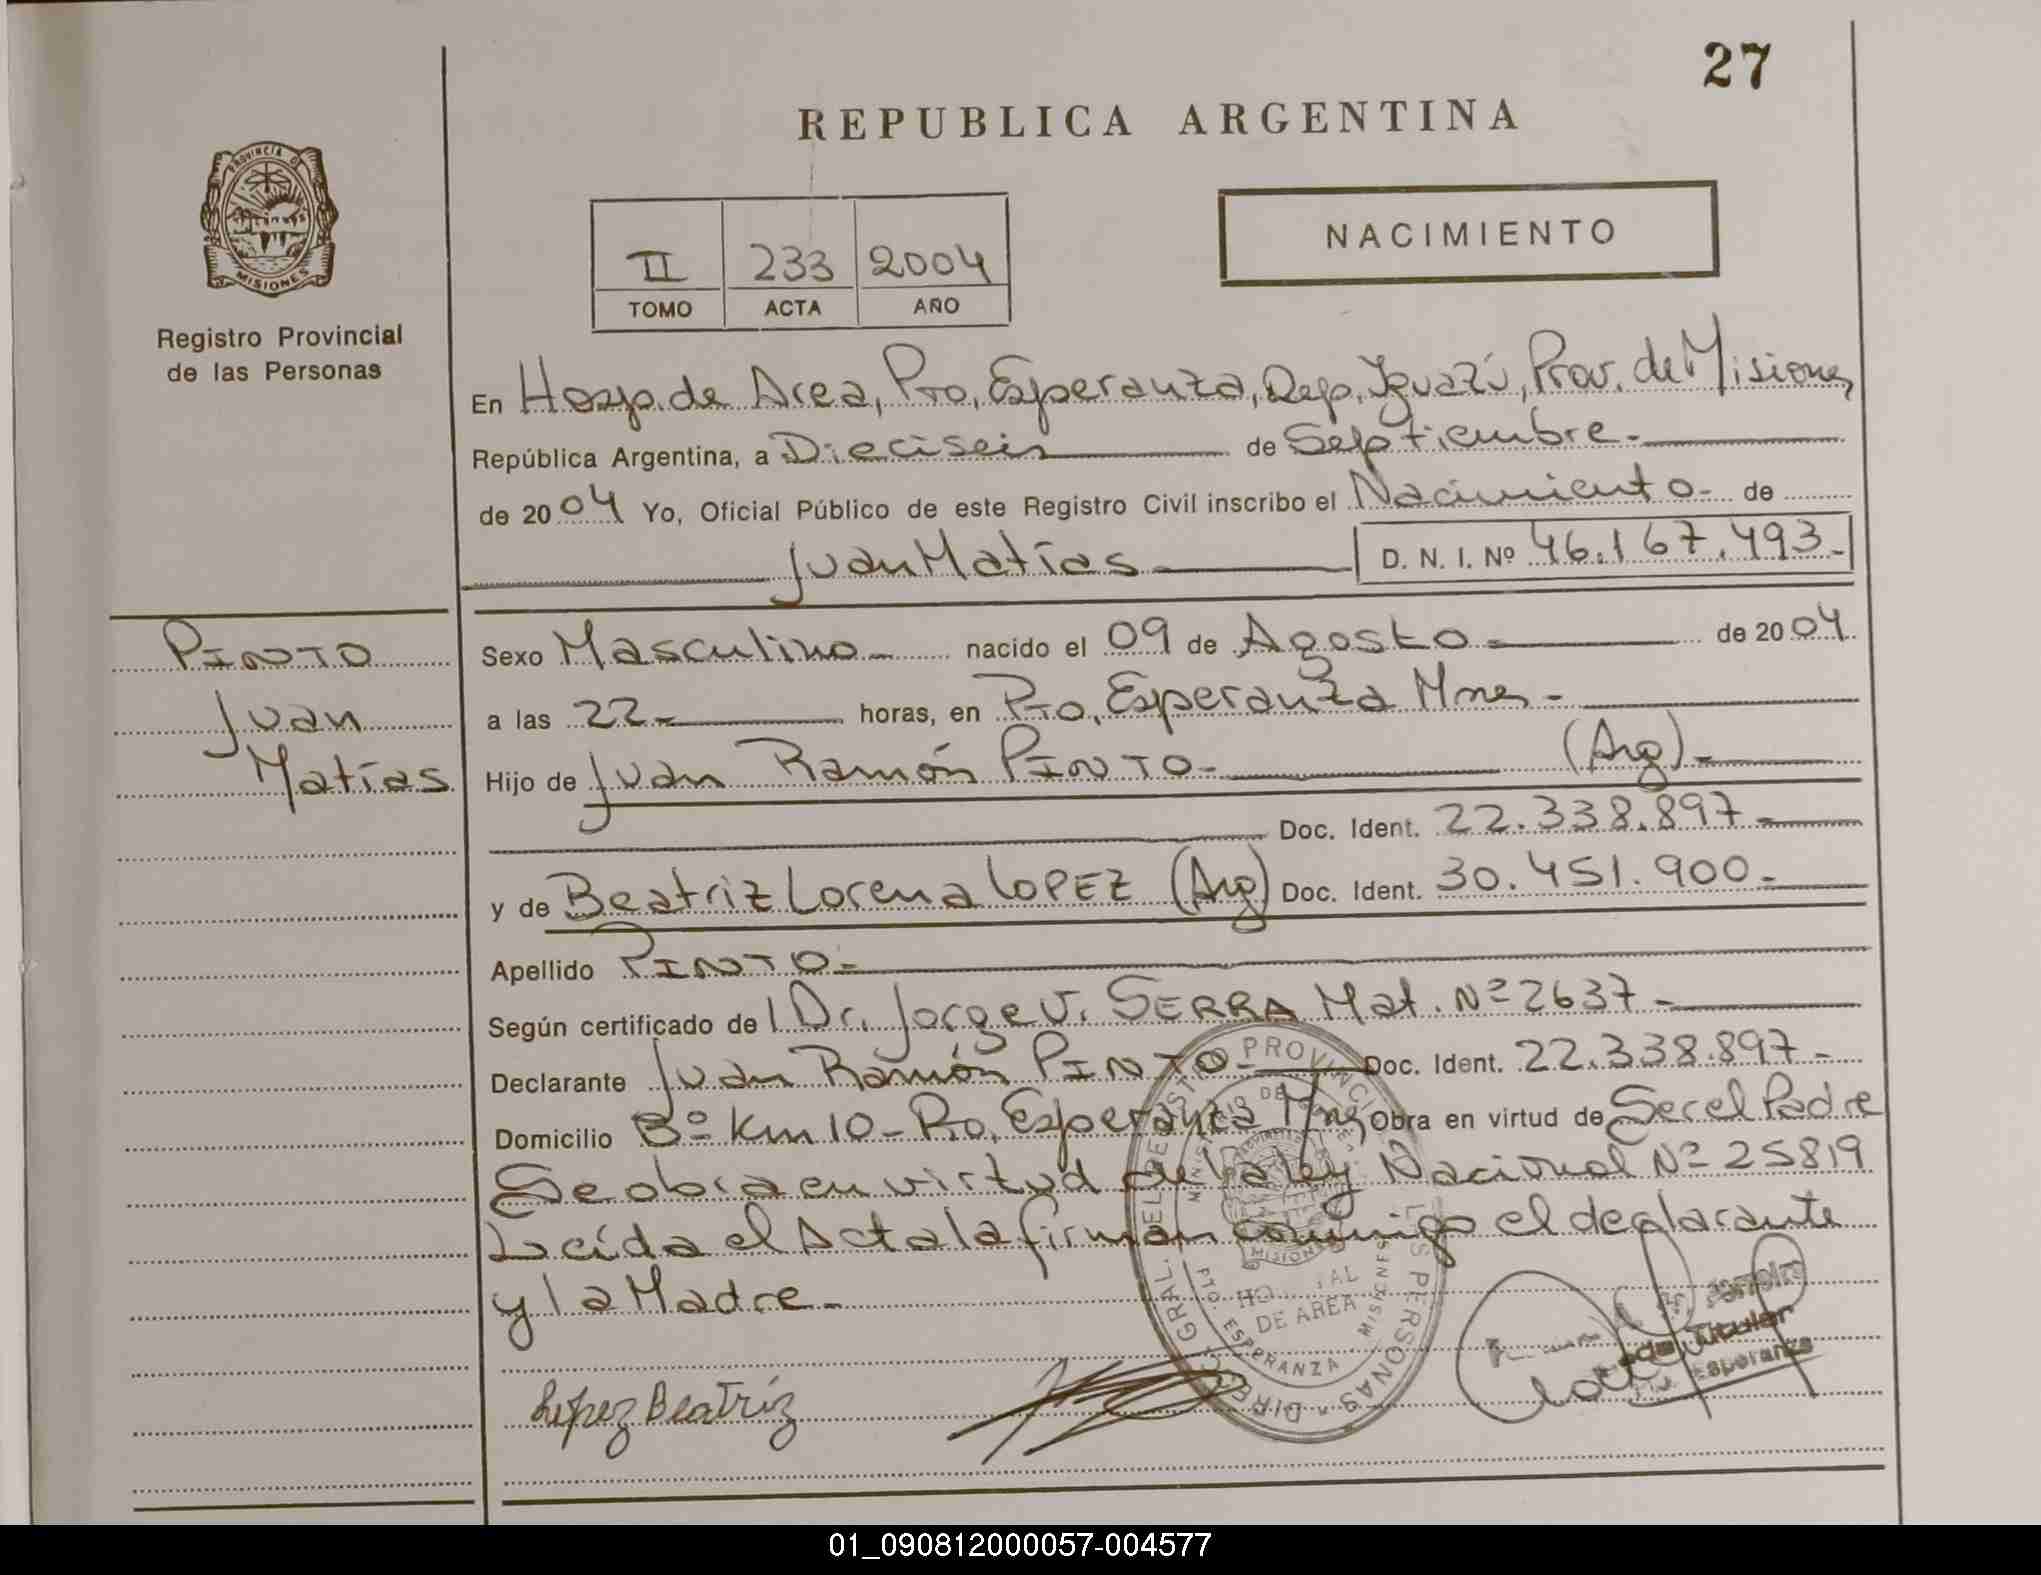 27
REPUBLICA ARGENTINA
PROVINCIA DE
MISIONES
Registro Provincial
de las Personas
II 233 2004
TOMO ACTA AÑO
NACIMIENTO
En Hosp. de Area, Pto. Esperanza, Dep. Iguazú, Prov. de Misiones
República Argentina, a Dieciseis de Septiembre.-
de 2004 Yo, Oficial Público de este Registro Civil inscribo el Nacimiento- de
Juan Matías - D. N. I. Nº 46.167.493-
PINTO
Juan
Matías
Sexo Masculino- nacido el 09 de Agosto- de 2004
a las 22- horas, en Pto. Esperanza Mnes-
Hijo de Juan Ramón PINTO- (Arg)-
Doc. Ident. 22.338.897-
y de Beatriz Lorena LOPEZ (Arg) Doc. Ident. 30.451.900-
Apellido PINTO-
Según certificado de l Dr. Jorge V. SERRA Mat. Nº 2637-
Declarante Juan Ramón PINTO- Doc. Ident. 22.338.897-
Domicilio Bº Km 10- Pto. Esperanza Mnes Obra en virtud de Ser el Padre
Se obra en virtud de la ley Nacional Nº 25819
Leída el Acta la firman conmigo el declarante
y la Madre-
DIREC. GRAL. DEL REGISTRO PROVINCIAL DE LAS PERSONAS
MISIONES
DE AREA
PTO. ESPERANZA MISIONES
Lopez Beatríz
Titular
Esperanza
01_090812000057-004577